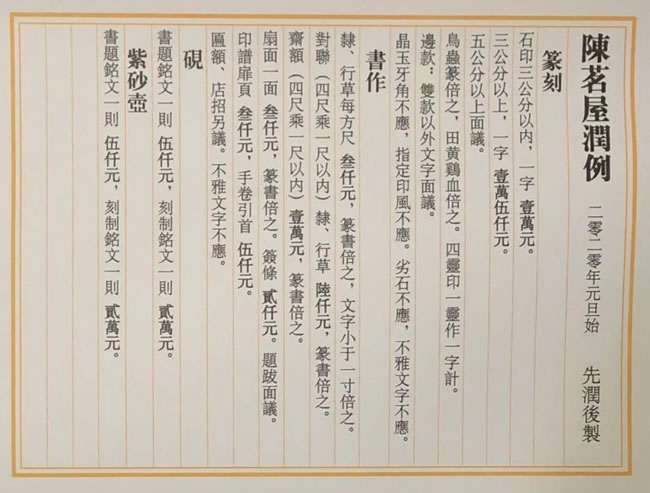 陳茗屋潤例　二零二零年元旦始　先潤後製
篆刻
石印三公分以内，一字 壹萬元。
三公分以上，一字 壹萬伍仟元。
五公分以上面議。
鳥蟲篆倍之，田黄鷄血倍之。四靈印一靈作一字計。
邊款：雙款以外文字面議。
晶玉牙角不應，指定印風不應。劣石不應，不雅文字不應。
書作
隸、行草每方尺 叁仟元，篆書倍之，文字小于一寸倍之。
對聯（四尺乘一尺以内）隸、行草 陸仟元，篆書倍之。
齋額（四尺乘一尺以内）壹萬元，篆書倍之。
扇面一面 叁仟元，篆書倍之。簽條 貳仟元。題跋面議。
印譜扉頁 叁仟元，手卷引首 伍仟元。
匾額、店招另議。不雅文字不應。
硯
書題銘文一則 伍仟元，刻制銘文一則 貳萬元。
紫砂壺
書題銘文一則 伍仟元，刻制銘文一則 貳萬元。